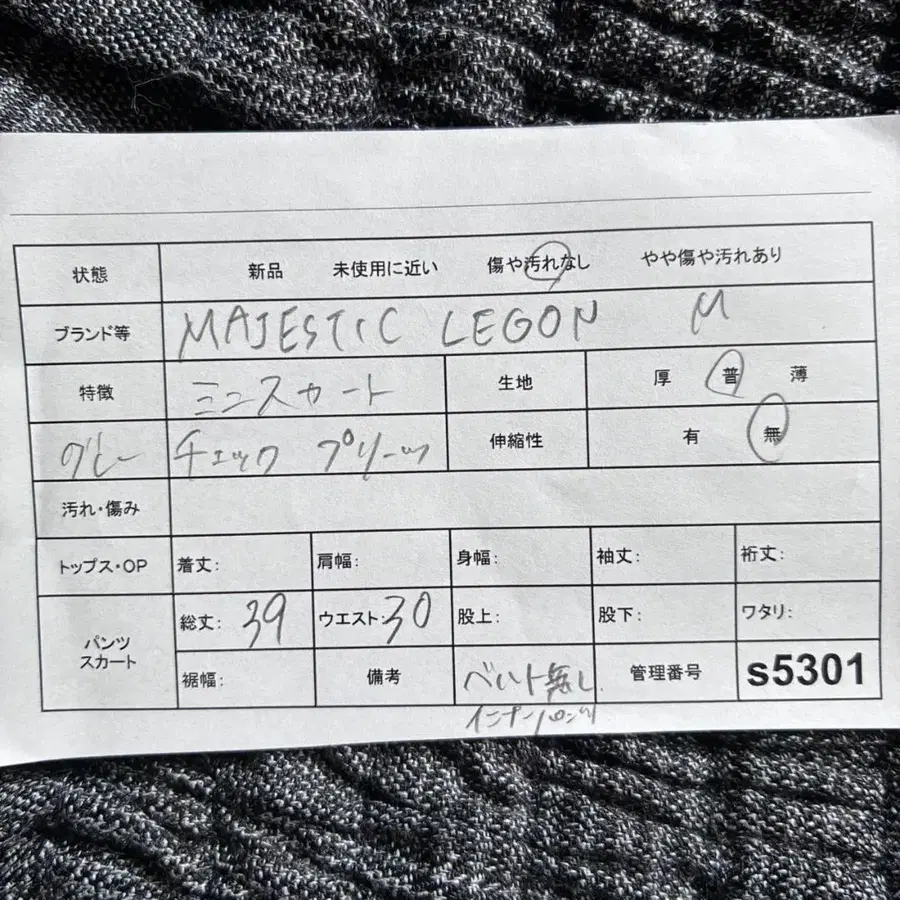 状態 新品 未使用に近い 傷や汚れなし やや傷や汚れあり
ブランド等 MAJESTIC LEGON M
特徴 ミニスカート 生地 厚 普 薄
グレー チェック プリーツ 伸縮性 有 無
汚れ・傷み
トップス・OP 着丈: 肩幅: 身幅: 袖丈: 裄丈:
パンツ スカート 総丈: 39 ウエスト: 30 股上: 股下: ワタリ:
裾幅: 備考 ベルト無し 管理番号 s5301
インナーパンツ